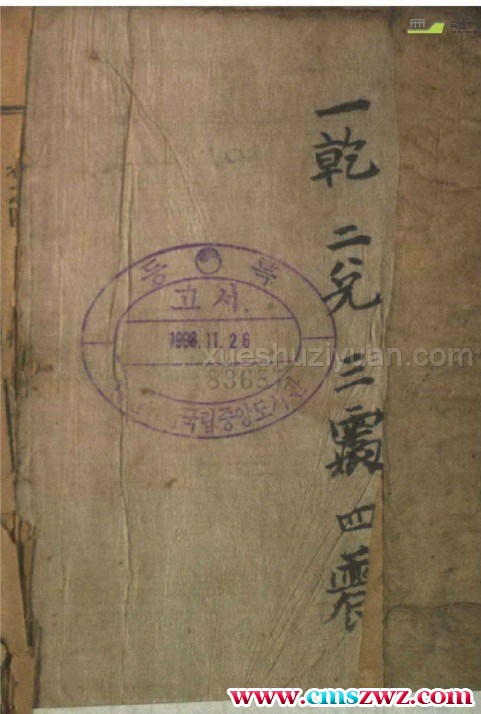 一乾 二兌 三 四震
등록
고서
1998.11.26
8365
국립중앙도서관
xueshuziyuan.com
www.cmszwz.com